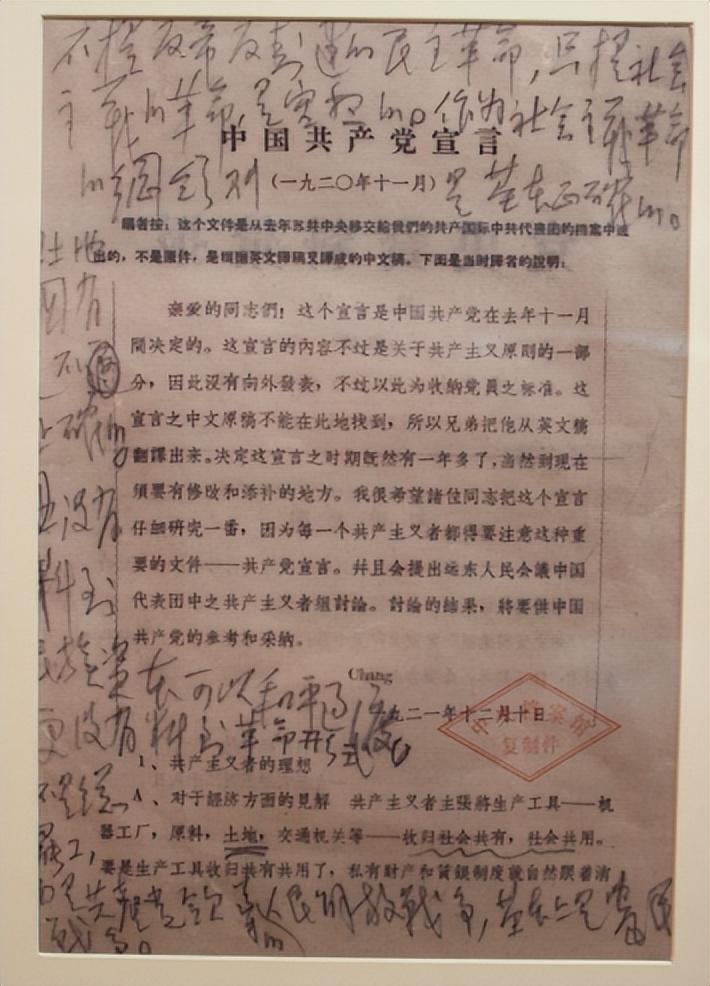 不提反帝反封建的民主革命，只提社会
主义的革命，是空想的。作为社会主义革命
的纲领则 是基本正确的。
中国共产党宣言
（一九二〇年十一月）
編者按：这个文件是从去年苏共中央移交給我們的共产国际中共代表团的档案中选
出的，不是原件，是根据英文譯稿又譯成的中文稿。下面是当时譯者的說明：
亲爱的同志們！这个宣言是中国共产党在去年十一月
間决定的。这宣言的內容不过是关于共产主义原則的一部
分，因此沒有向外發表，不过以此为收納党員之标准。这
宣言之中文原稿不能在此地找到，所以兄弟把他从英文稿
翻譯出来。决定这宣言之时期旣然有一年多了，当然到現在
須要有修改和添补的地方。我很希望諸位同志把这个宣言
仔細研究一番，因为每一个共产主义者都得要注意这种重
要的文件——共产党宣言。幷且会提出远东人民会議中国
代表团中之共产主义者組討論。討論的結果，將要供中国
共产党的参考和采納。
Chang
一九二一年十二月十日
中央档案館
复制件
1、共产主义者的理想
A、对于經济方面的見解 共产主义者主張將生产工具——机
器工厂，原料，土地，交通机关等——收归社会共有，社会共用。
要是生产工具收归共有共用了，私有財产和賃銀制度就自然跟着消
土地
国有
不
正确的
且没有
料到
民族资本可以和平过渡
更没有料到革命形式
不是总
罢工，
而是共产党领导的人民解放战争，基本上是农民
战争。